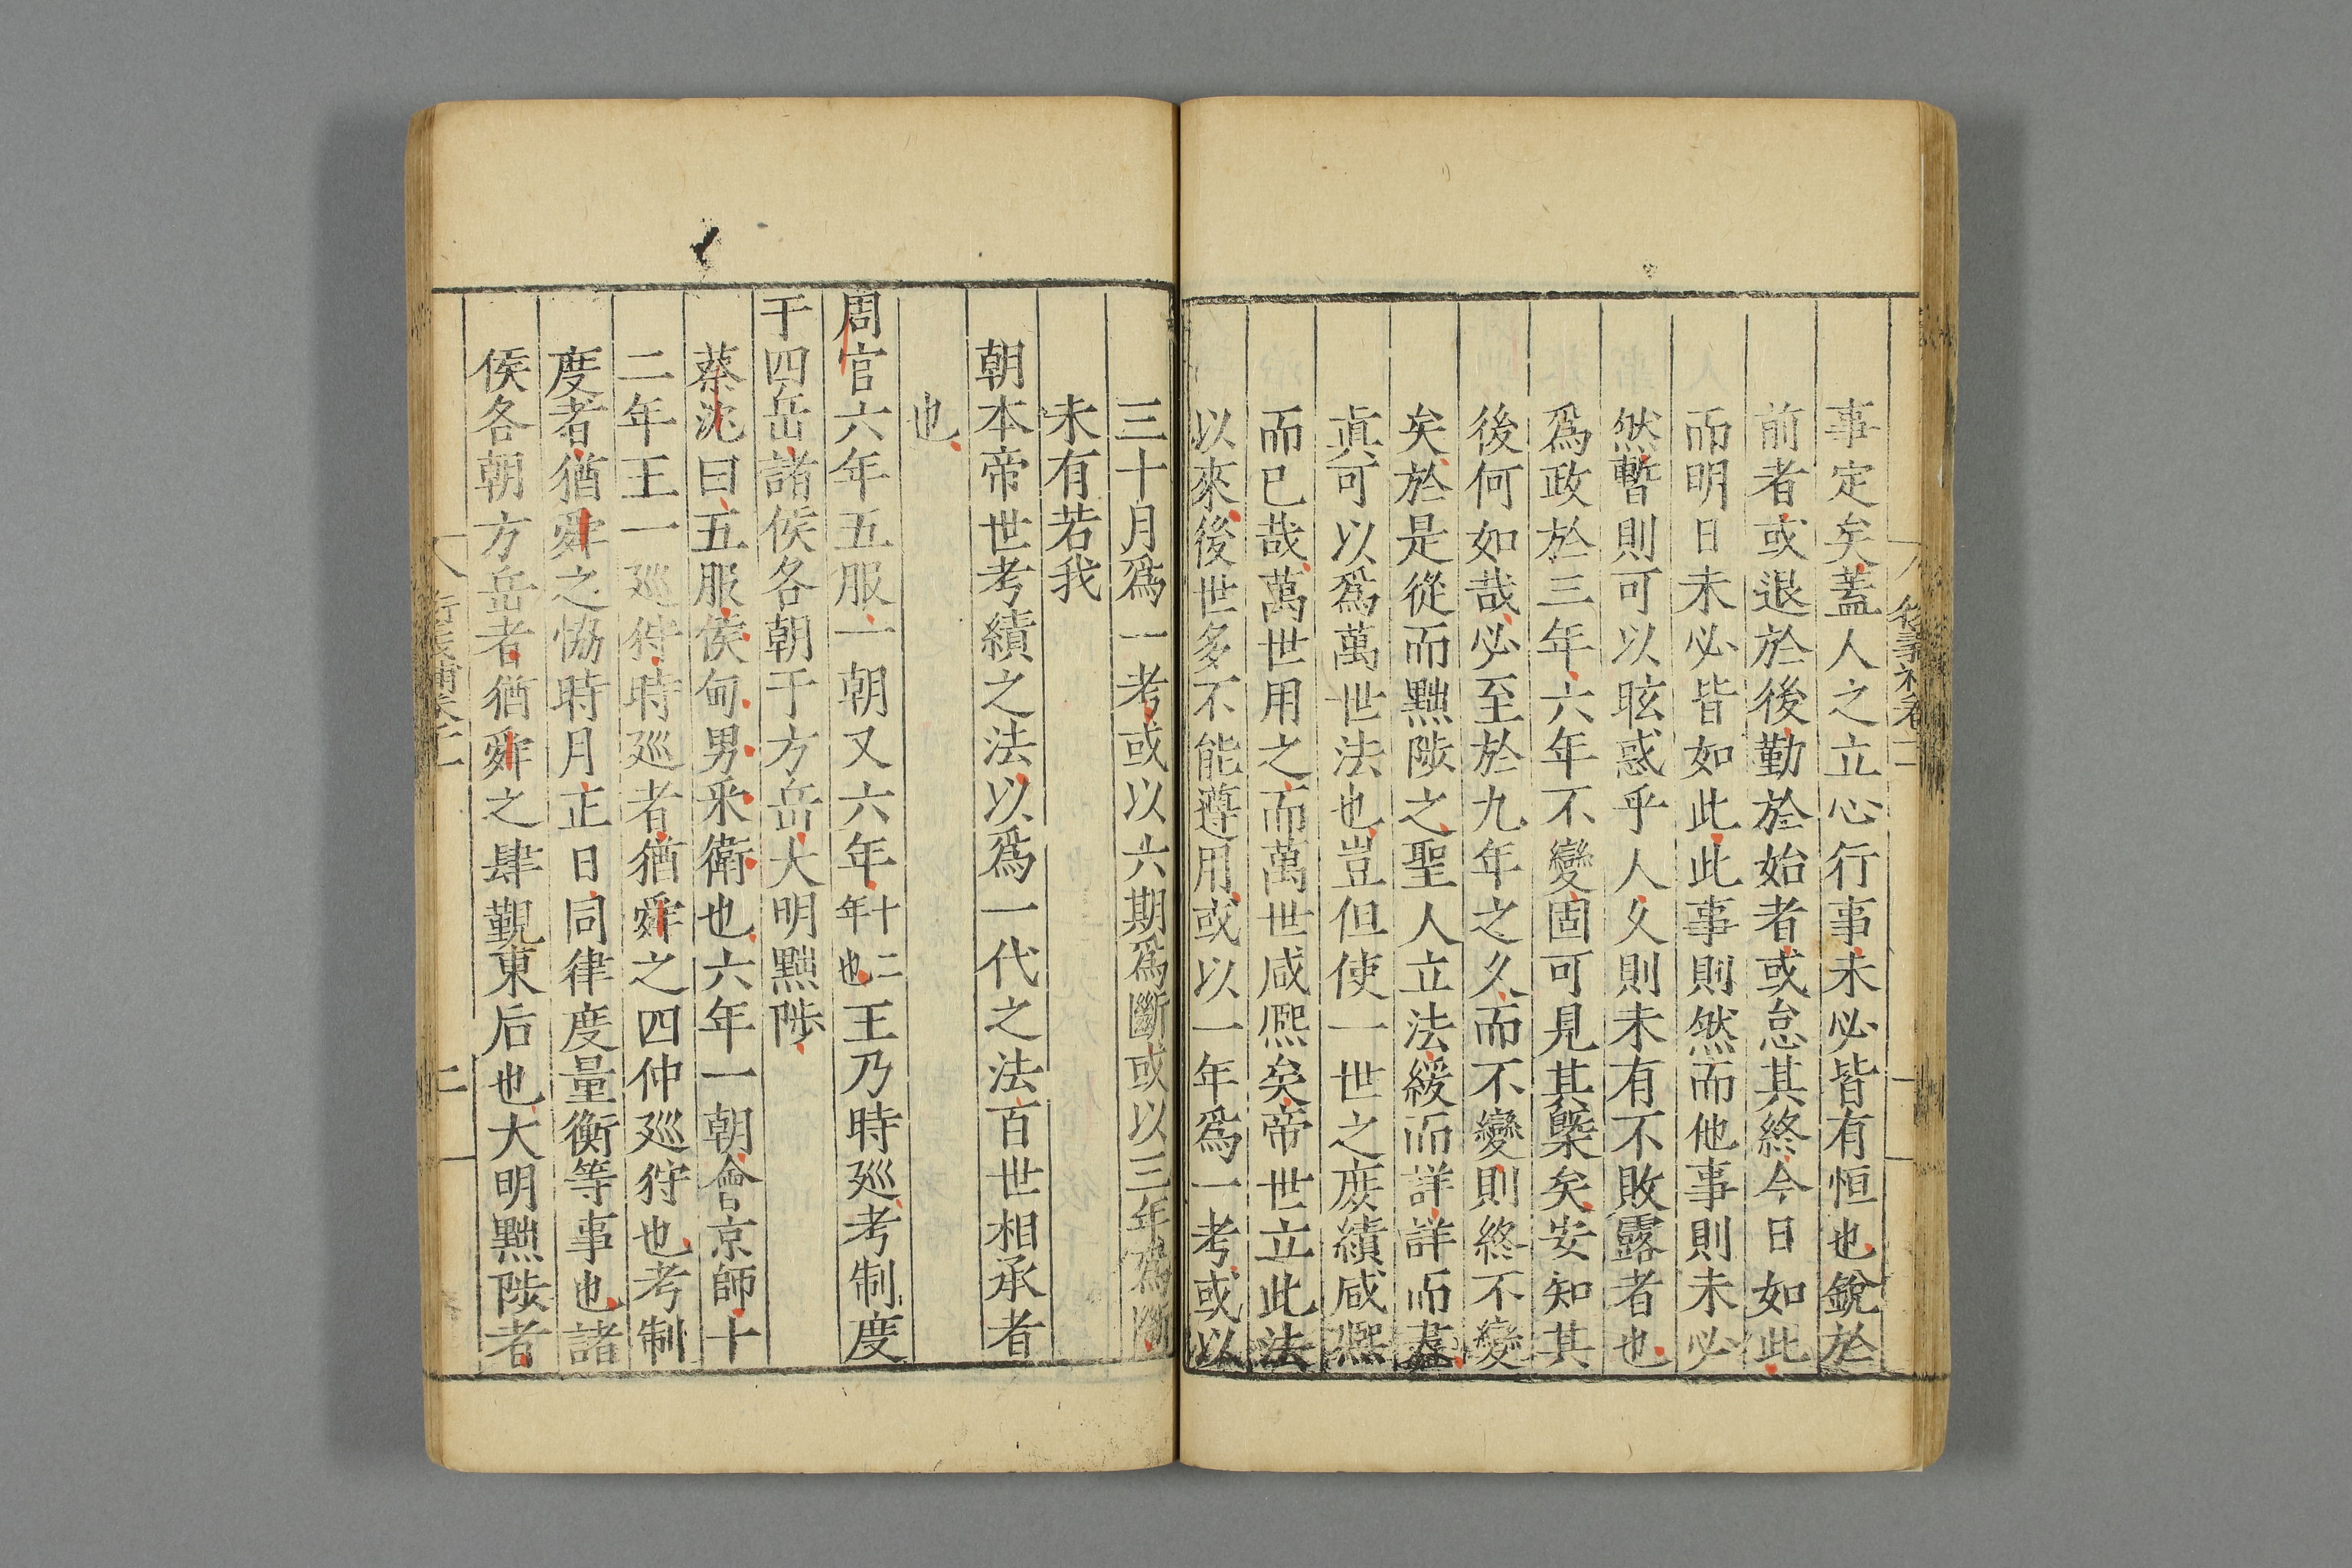 事定矣蓋人之立心行事未必皆有恒也銳於
前者或退於後勤於始者或怠其終今日如此
而明日未必皆如此此事則然而他事則未必
然暫則可以眩惑乎人久則未有不敗露者也
爲政於三年六年不變固可見其槩矣安知其
後何如哉必至於九年之久而不變則終不變
矣於是從而黜陟之聖人立法緩而詳詳而盡
眞可以爲萬世法也豈但使一世之庶績咸熈
而已哉萬世用之而萬世咸熈矣帝世立此法
以來後世多不能遵用或以一年爲一考或以
三十月爲一考或以六期爲斷或以三年爲斷
未有若我
朝本帝世考績之法以爲一代之法百世相承者
也
周官六年五服一朝又六年十二年也王乃時廵考制度
于四岳諸侯各朝于方岳大明黜陟
蔡沈曰五服侯甸男采衛也六年一朝會京師十
二年王一廵狩時廵者猶舜之四仲廵狩也考制
度者猶舜之恊時月正日同律度量衡等事也諸
侯各朝方岳者猶舜之肆覲東后也大明黜陟者
二